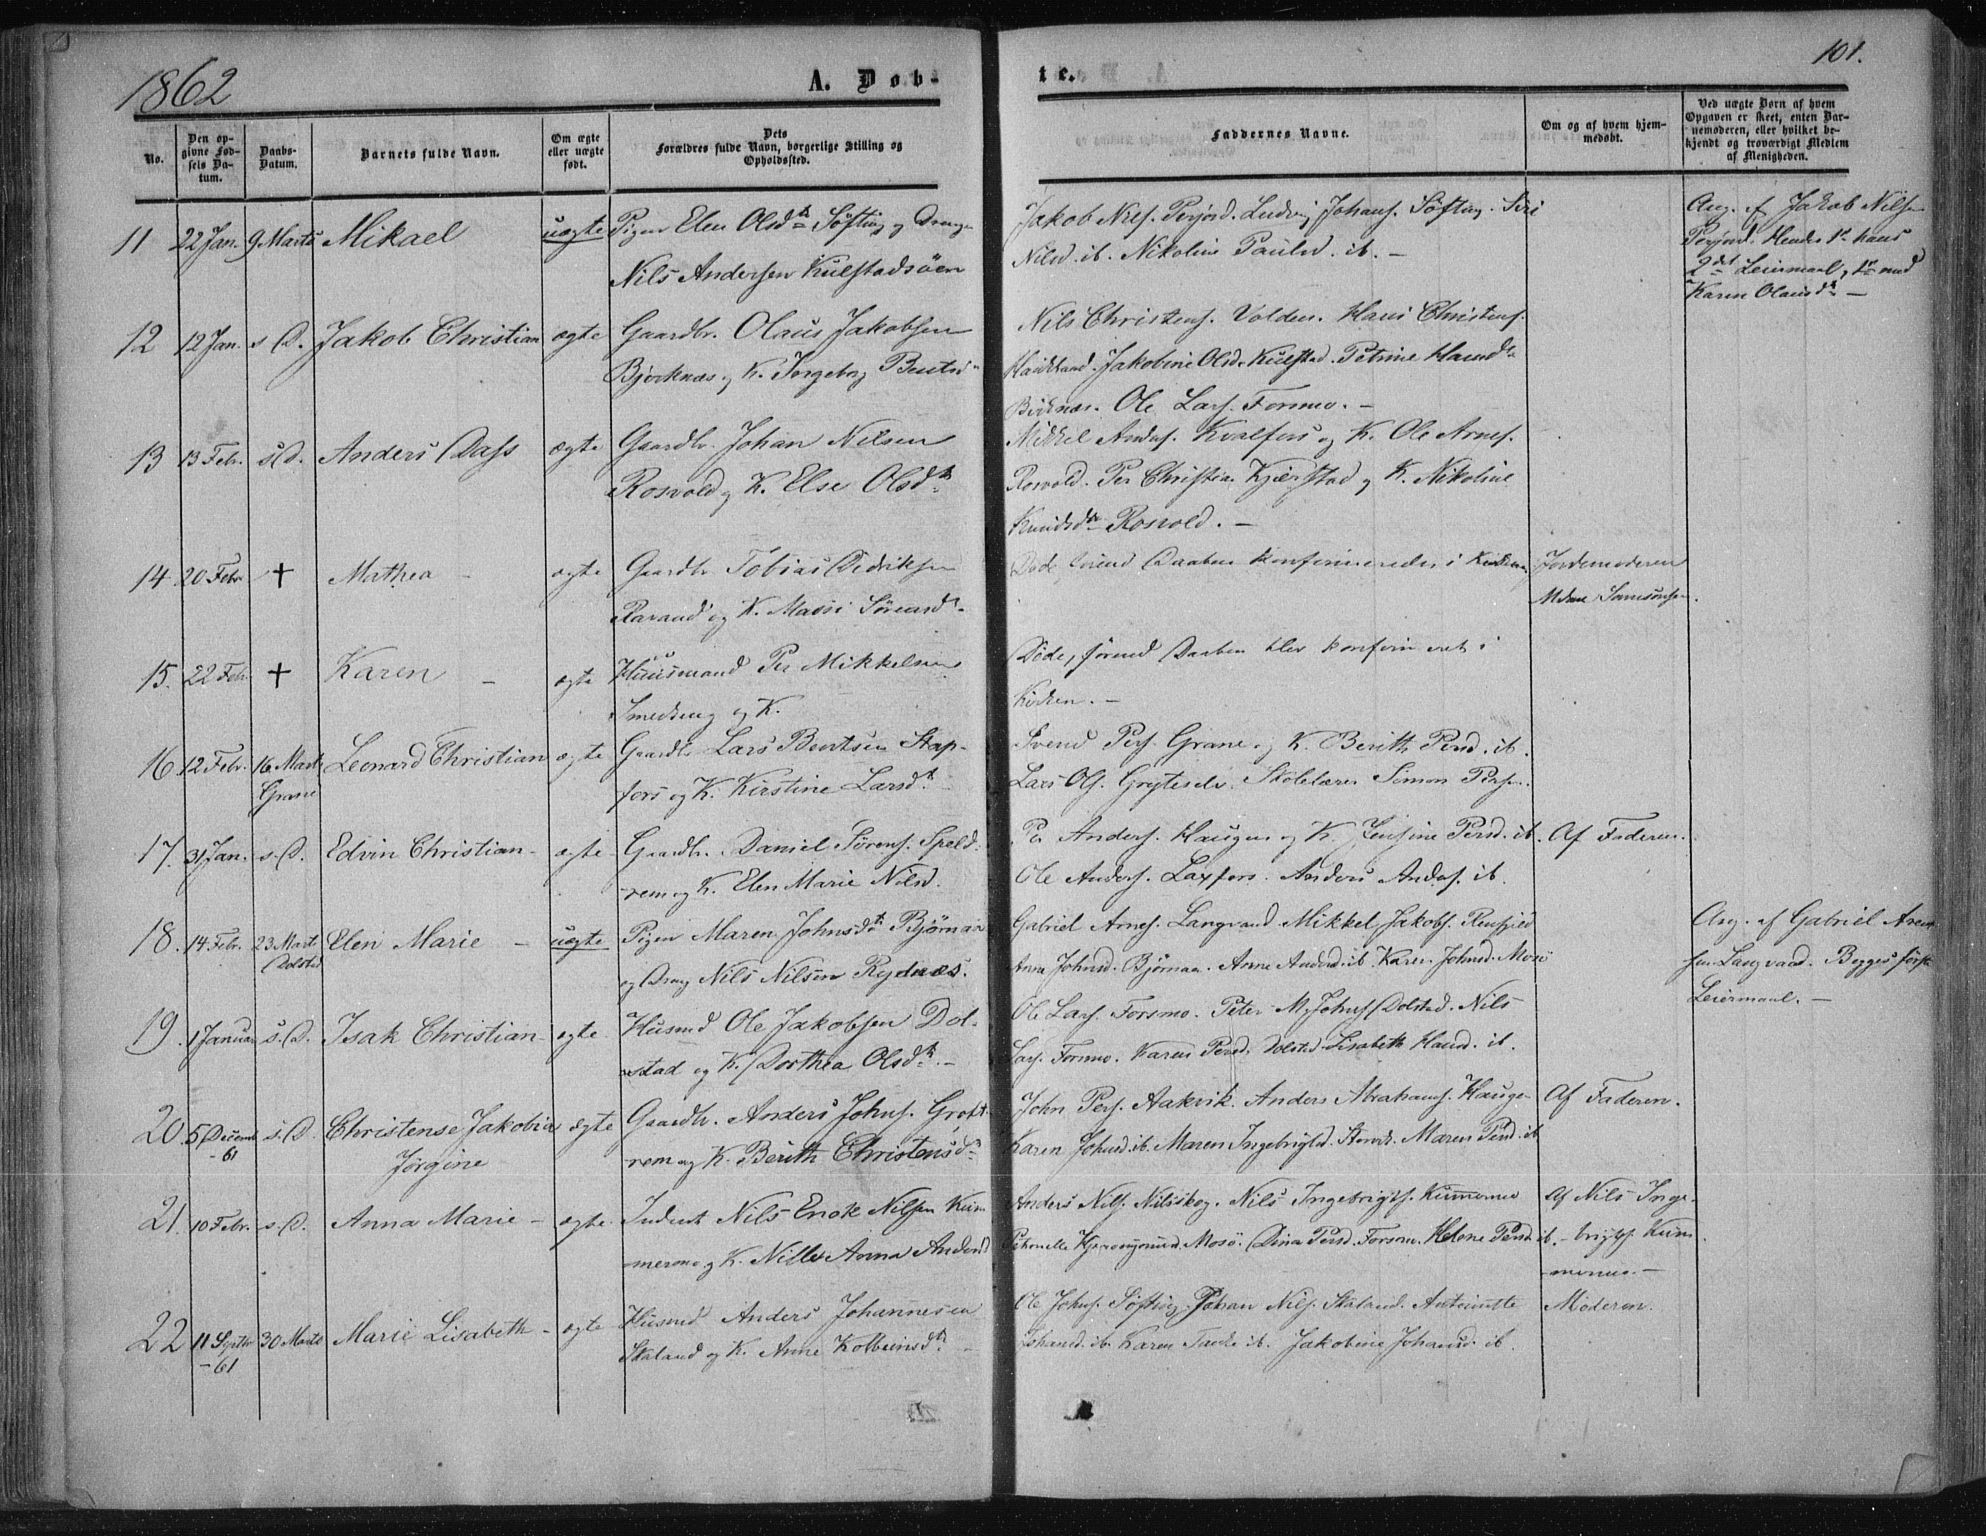 1862
A. Døb-
te.
101.
No.
Den op-
givne Fød-
sels Da-
tum.
Daabs-
Datum.
Barnets fulde Navn.
Om ægte
eller uægte
født.
Dets
Forældres fulde Navn, borgerlige Stilling og
Opholdssted.
Faddernes Navne.
Om og af hvem hjem-
medøbt.
Ved uægte Børn af hvem
Opgaven er skeet, enten Bar-
nemoderen, eller hvilket be-
kjendt og troværdigt Medlem
af Menigheden.
11 22 Jan. 9 Marts Mikael uægte Pigen Elen Olsdtr Søfting og Dreng
Nils Andersen Kulstadsøen
Jakob Nils. Perjord. Ludvig Johans. Søfting. Siri
Nilsd. ib. Nikoline Paulsd. ib. –
Ang. af Jakob Nilsen
Perjord. Hendes 1ste hans
2det Leiermaal, 1ste med
Karen Olausdtr –
12 12 Jan. s. D. Jakob Christian ægte Gaardbr. Olaus Jakobsen
Bjorknæs og K. Ingeborg Bentsd
Nils Christens. Volden. Hans Christens.
Jakobine Olsd. Kulstad. Petrine Hansd
Ole Lars. Formo. –
13 13 Febr. s. D. Anders Dass ægte Gaardbr. Johan Nilsen
Rosvold og K. Else Olsdtr
Mikkel Anders. Kvalfors og K. Ole Arnes.
Rosvold. Per Christian Kjærstad og K. Nikoline
Knudsdtr Rosvold. –
14 20 Febr + Mathea – ægte Gaardbr Tobias Didriksen
og K. Sørensd.
Døde førend Daaben konfirmeredes i Kirken
Jordemoderen
Samsonsen.
15. 22 Febr + Karen – ægte Huusmand Per Mikkelsen
Smedseng og K.
Døde, førend Daaben blev konfirmeret i
Kirken. –
16 12 Febr. 16 Marts Leonard Christian ægte Gaardbr Lars Bentsen Stap-
Grane
fors og K. Kirstine Larsdtr
Svend Pers. Grane og K. Berith Persd. ib.
Lars Ols. Skolelærer Simon Persen.
17. 31 Jan. s. D. Edvin Christian – ægte Gaardbr. Daniel Sørens. Speld-
rem og K. Elen Marie Nilsd.
Per Anders. Haugen og K. Jensine Persd. ib.
Ole Anders. Laxfors. Anders Anders. ib.
Af Faderen.
18. 14 Febr. 23 Marts Elen Marie – uægte Pigen Maren Johnsdtr Bjørnaa
Dolstad
og Dreng Nils Nilsen Rydnæs.
Gabriel Arnes. Langvand Mikkel Jakobs.
Anne Johnsd. Bjørnaa. Anne Andersd. ib. Karen Johnsd.
Ang. af Gabriel Arne-
sen Langvand. Begges første
Leiermaal. –
19. 1 Januar s. D. Isak Christian – ægte Husmd Ole Jakobsen Dol-
stad og K. Dorthea Olsdtr. –
Ole Lars. Forsmo. Peter M. Johns. Dolstad. Nils
Lars. Formo. Karen Persd. Dolsted. Lisabeth Hansd. ib.
20 5 Decemb s. D. Christense Jakobia ægte Gaardbr. Anders Johns. Grøft-
-61
Jørgine
rem og K. Berith Christensd
John Pers. Aakvik. Anders Abrahams. Haugen
Karen Johnsd. ib. Maren Ingebrigtsd. Maren Persd. ib
Af Faderen.
21. 10 Febr. s. D. Anna Marie – ægte Inderst Nils Enok Nilsen Kum-
mermo og K. Anna Andersd
Anders Nils. Nilsskog. Nils Ingebrigts. Kummermo
Mosø. Dina Persd. Forsmo. Helene Persd. ib.
Af Nils Inge-
brigts. Kum
mermo. –
22 11 Septbr 30 Marts Marie Lisabeth – ægte Husmd Anders Johannesen
-61
Skaland og K. Anne Kolbeinsdtr –
Ole Johns. Søfting. Johan Nils. Skaland. Antonette
Johansd. ib. Karen ib. Jakobine Johansd. ib.
Moderen.